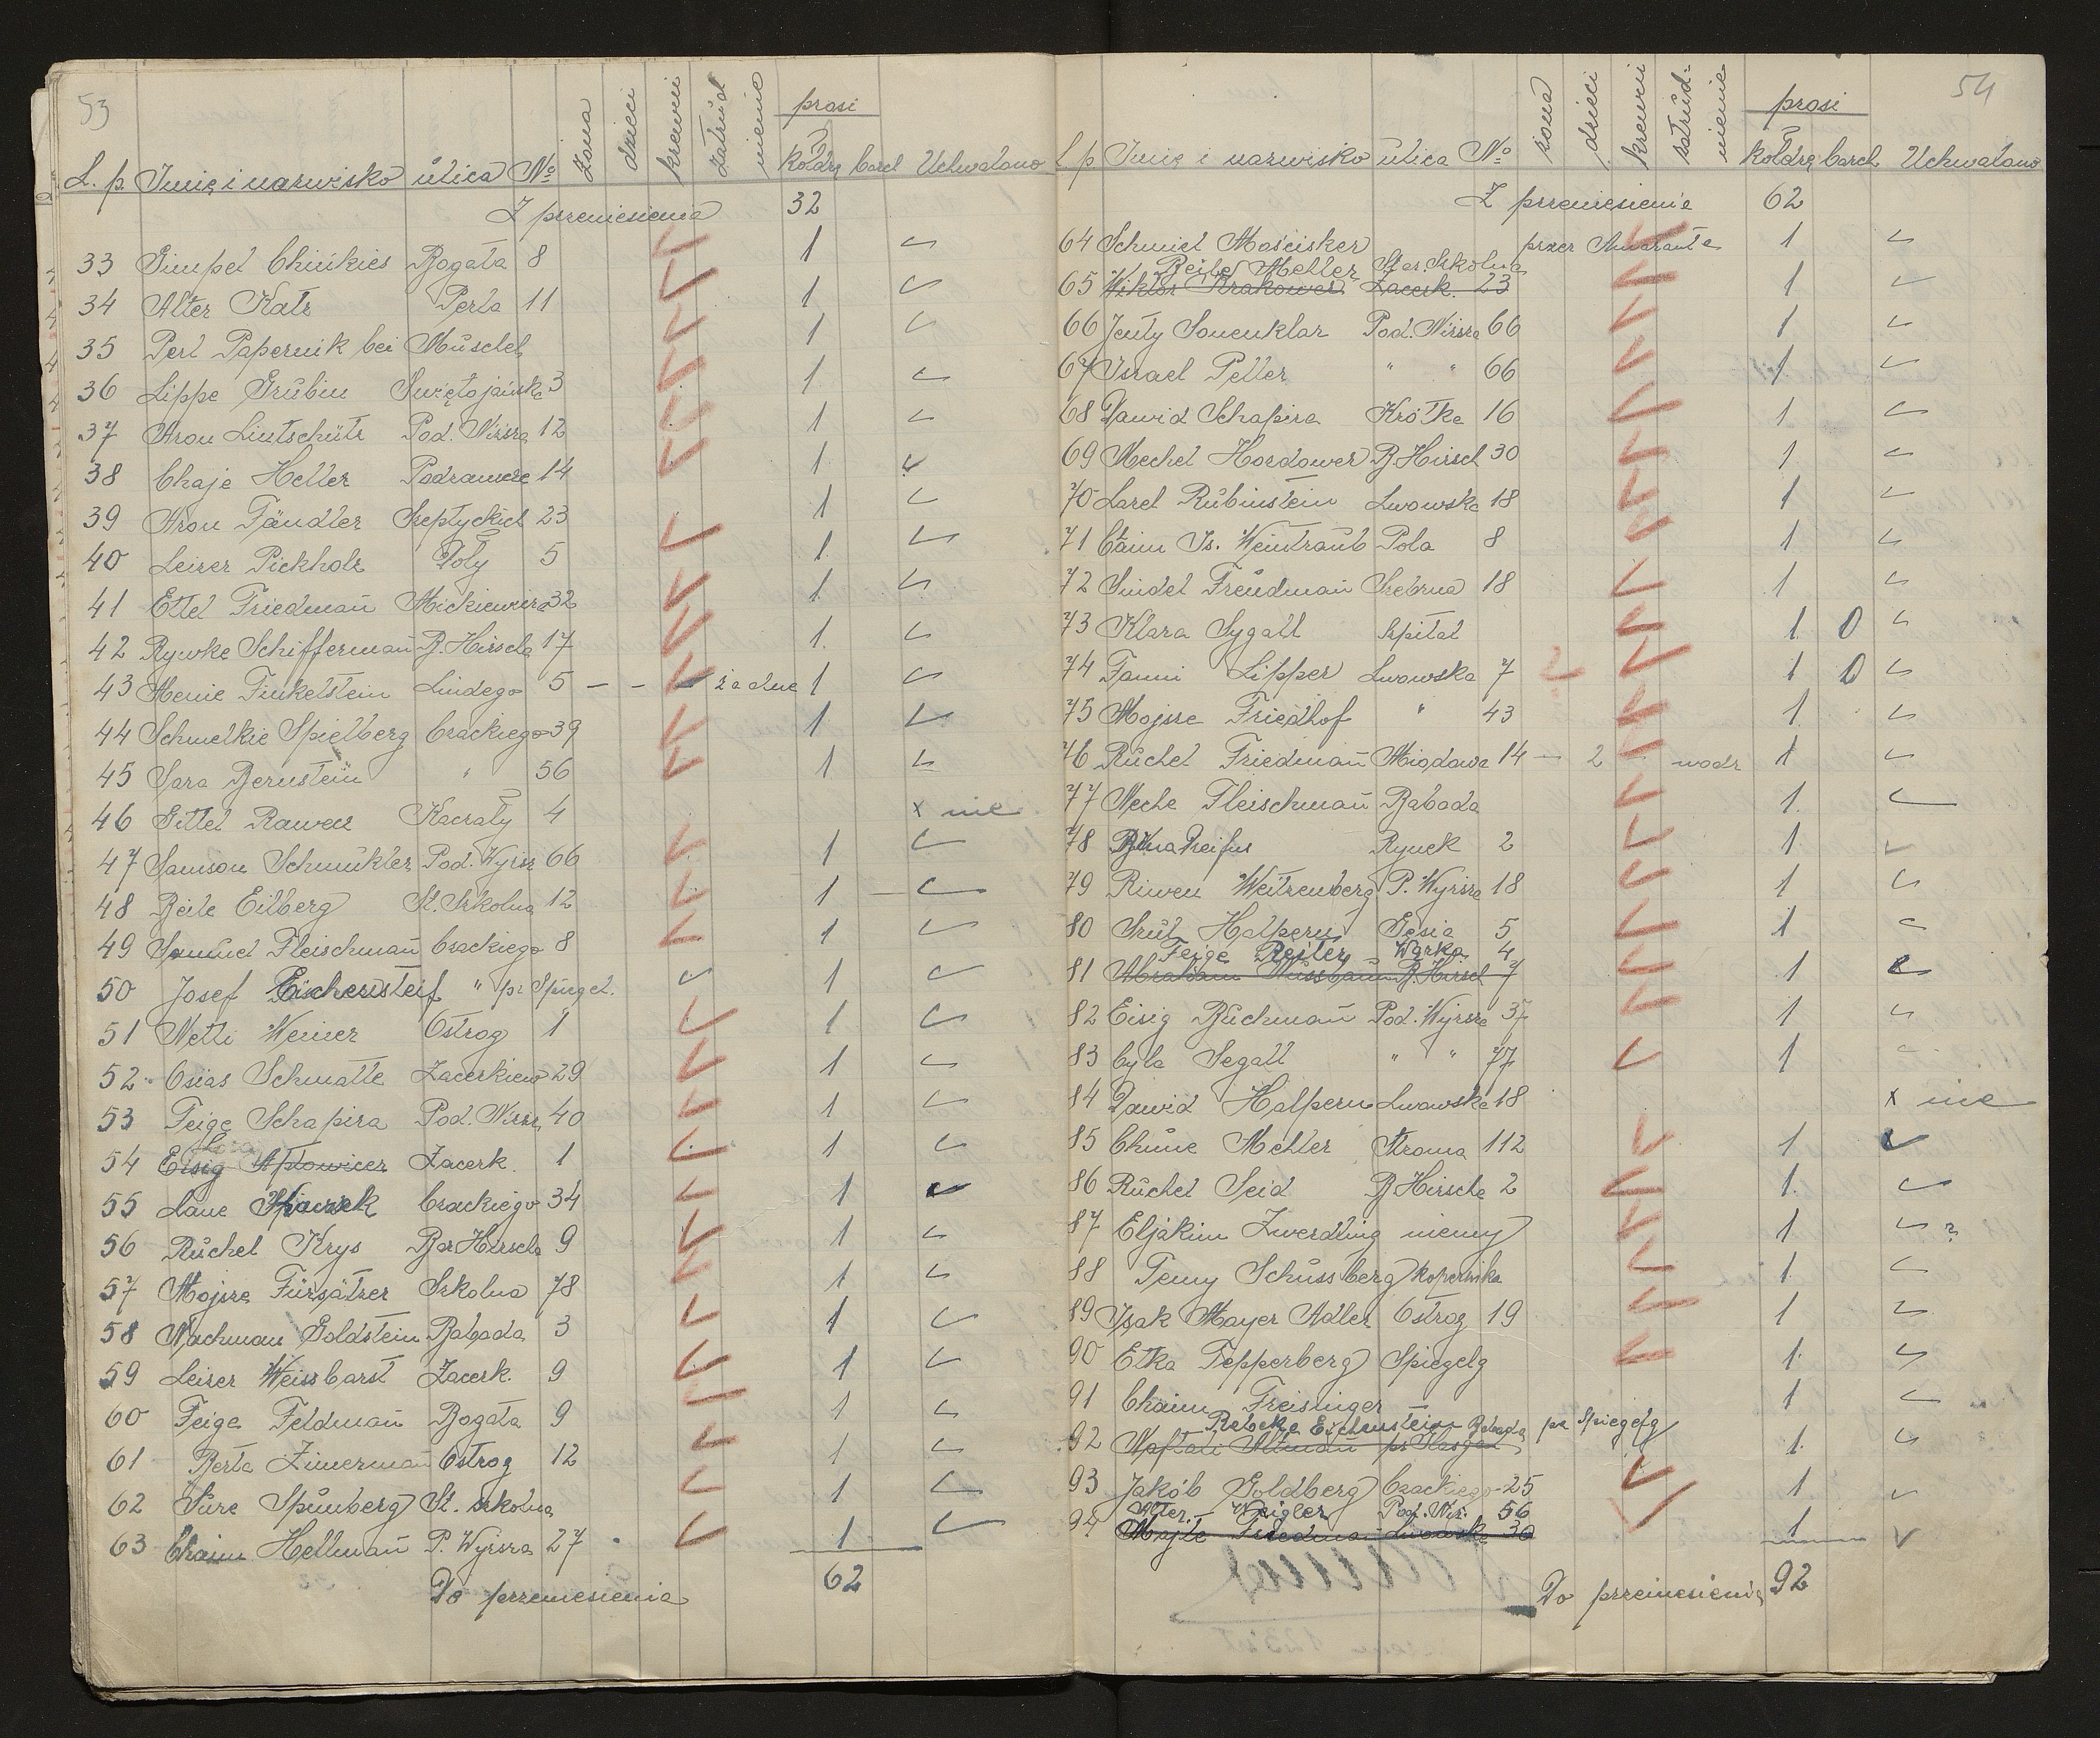 53
L. p. Imię i nazwisko ulica No żona dzieci krewni zatrudnienie prosi kołdrę barch Uchwalano
Z przeniesienia 32
33 Gimpel Chinkies Bogata 8 1
34 Alter Katz Perla 11 1
35 Perl Papernik bei Muschel 1
36 Lippe Grubin Świętojańska 3 1
37 Aron Lintschütz Pod. Niższa 12 1
38 Chaje Heller Podzamcze 14 1
39 Aron Tändler Szeptyckich 23 1
40 Leizer Pickholz Poły 5 1
41 Ettel Friedman Mickiewicza 32 1
42 Rywke Schifferman B. Hirscha 17 1
43 Menie Finkelstein Lindego 5 — - — żadne 1
44 Schmelkie Spielberg Czackiego 39 1
45 Sara Bernstein " 56 1
46 Gittel Rawen Kaczały 4 x nie
47 Samson Schmukler Pod. Wyższ 66 1
48 Beile Eilberg St. Szkolna 12 1
49 Samuel Fleischman Czackiego 8 1
50 Josef " pr Spiegel. 1
51 Netti Weiner Ostrog 1 1
52 Osias Schmalle Zacerkiew 29 1
53 Feige Schapira Pod. Niższ 40 1
54 Eisig Aptowicer Zacerk. 1 1
55 Lane Czackiego 34 1
56 Ruchel Krys Bar Hirscha 9 1
57 Mojsze Fürsätzer Szkolna 78 1
58 Nachman Goldstein Babada 3 1
59 Leizer Weissbarst Zacerk. 9 1
60 Feige Feldman Bogata 9 1
61 Berta Zimerman Ostrog 12 1
62 Sure Spünberg St. szkolna 1
63 Chaim Hellman P. Wyższa 27 1
Do przeniesienia 62
54
L. p. Imię i nazwisko ulica No żona dzieci krewni zatrudnienie prosi kołdrę barch Uchwalano
Z przeniesienia 62
64 Schmiel Mościsker przez Amaranta 1
Beile Meller Star. Szkolna
65 Wiktor Krakower Zacerk. 23 1
66 Jenty Sonenklar Pod. Niższa 66 1
67 Israel Peller " " 66 1
68 Dawid Schapira Krótka 16 1
69 Mechel Hordower B Hirsch 30 1
70 Larel Rubinstein Lwowska 18 1
71 Chaim Is. Weintraub Pola 8 1
72 Sindel Freudman Srebrna 18 1
73 Klara Sygall Szpital 1 0
74 Fanni Lipper Lwowska 7 1 0
75 Mojsze Friedhof " 43 1
76 Ruchel Friedman Miodowa 14 — 2 - wodz 1
77 Neche Fleischman Babada 1
78 Rynek 2 1
79 Riwen Weitzenberg P. Wyższa 18 1
80 Srul Halpern Gęsia 5 1
Feige Reiter Wąrka 4
81 Abraham Nussbaum B. Hirsch 7 1
82 Eisig Buchman Pod. Wyższa 37 1
83 Cyla Segall " " 77 1
84 Dawid Halpern Lwowska 18 x nie
85 Chune Mehler Stroma 112 1
86 Ruchel Seid B Hirscha 2 1
87 Eljakim Zwerdling niemy 1 ?
88 Temy Schussberg Kopernika 1
89 Isak Mayer Adler Ostrog 19 1
90 Etka Tepperberg Spiegelg 1
91 Chaim Freisinger 1
Rebeka Eichenstein Babada pr Spiegelg
92 Naftali Altman pr 1
93 Jakób Goldberg Czackiego 25 1
Alter Weigler Pod. Niż. 56
94 Majle Friedman Lwowska 30 1
Do przeniesienia 92